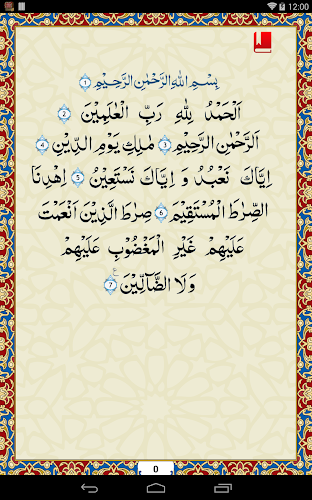 12:00
بِسْمِ اللهِ الرَّحْمٰنِ الرَّحِيْمِ ۝1
اَلْحَمْدُ لِلّٰهِ رَبِّ الْعٰلَمِيْنَ ۝2
اَلرَّحْمٰنِ الرَّحِيْمِ ۝3 مٰلِكِ يَوْمِ الدِّيْنِ ۝4
اِيَّاكَ نَعْبُدُ وَ اِيَّاكَ نَسْتَعِيْنُ ۝5 اِهْدِنَا
الصِّرَاطَ الْمُسْتَقِيْمَ ۝6 صِرَاطَ الَّذِيْنَ اَنْعَمْتَ
عَلَيْهِمْ غَيْرِ الْمَغْضُوْبِ عَلَيْهِمْ
وَلَا الضَّآلِّيْنَ ۝7 ع
0